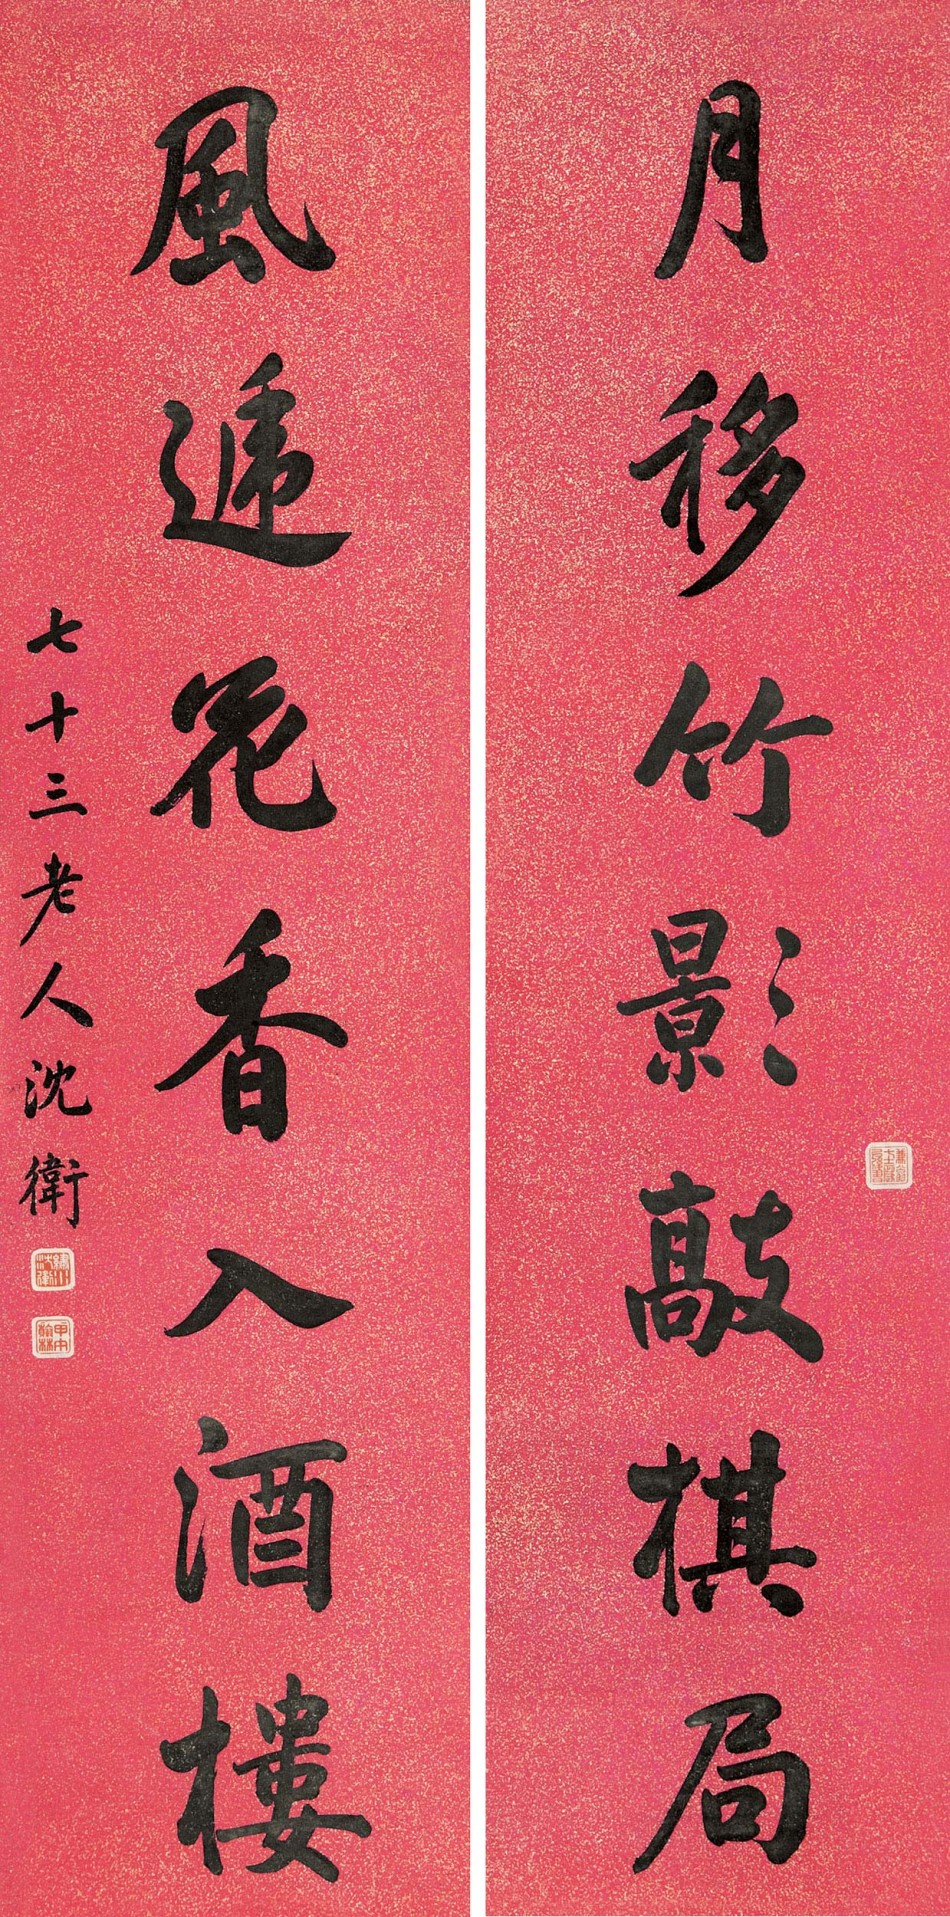 月移竹影敲棋局
風遞花香入酒樓
七十三老人沈衛
甲午翰林